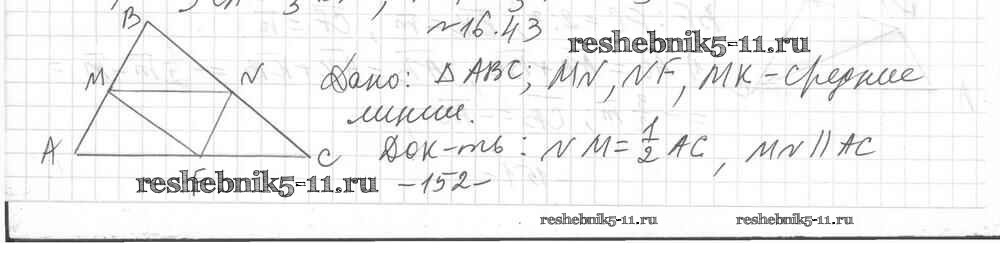 №16.43
reshebnik5-11.ru
B
M
N
Дано: △ABC; MN, NF, MK - средние
линии.
A
C
Док-ть: NM = 1/2 AC, MN || AC
reshebnik5-11.ru
-152-
reshebnik5-11.ru
reshebnik5-11.ru